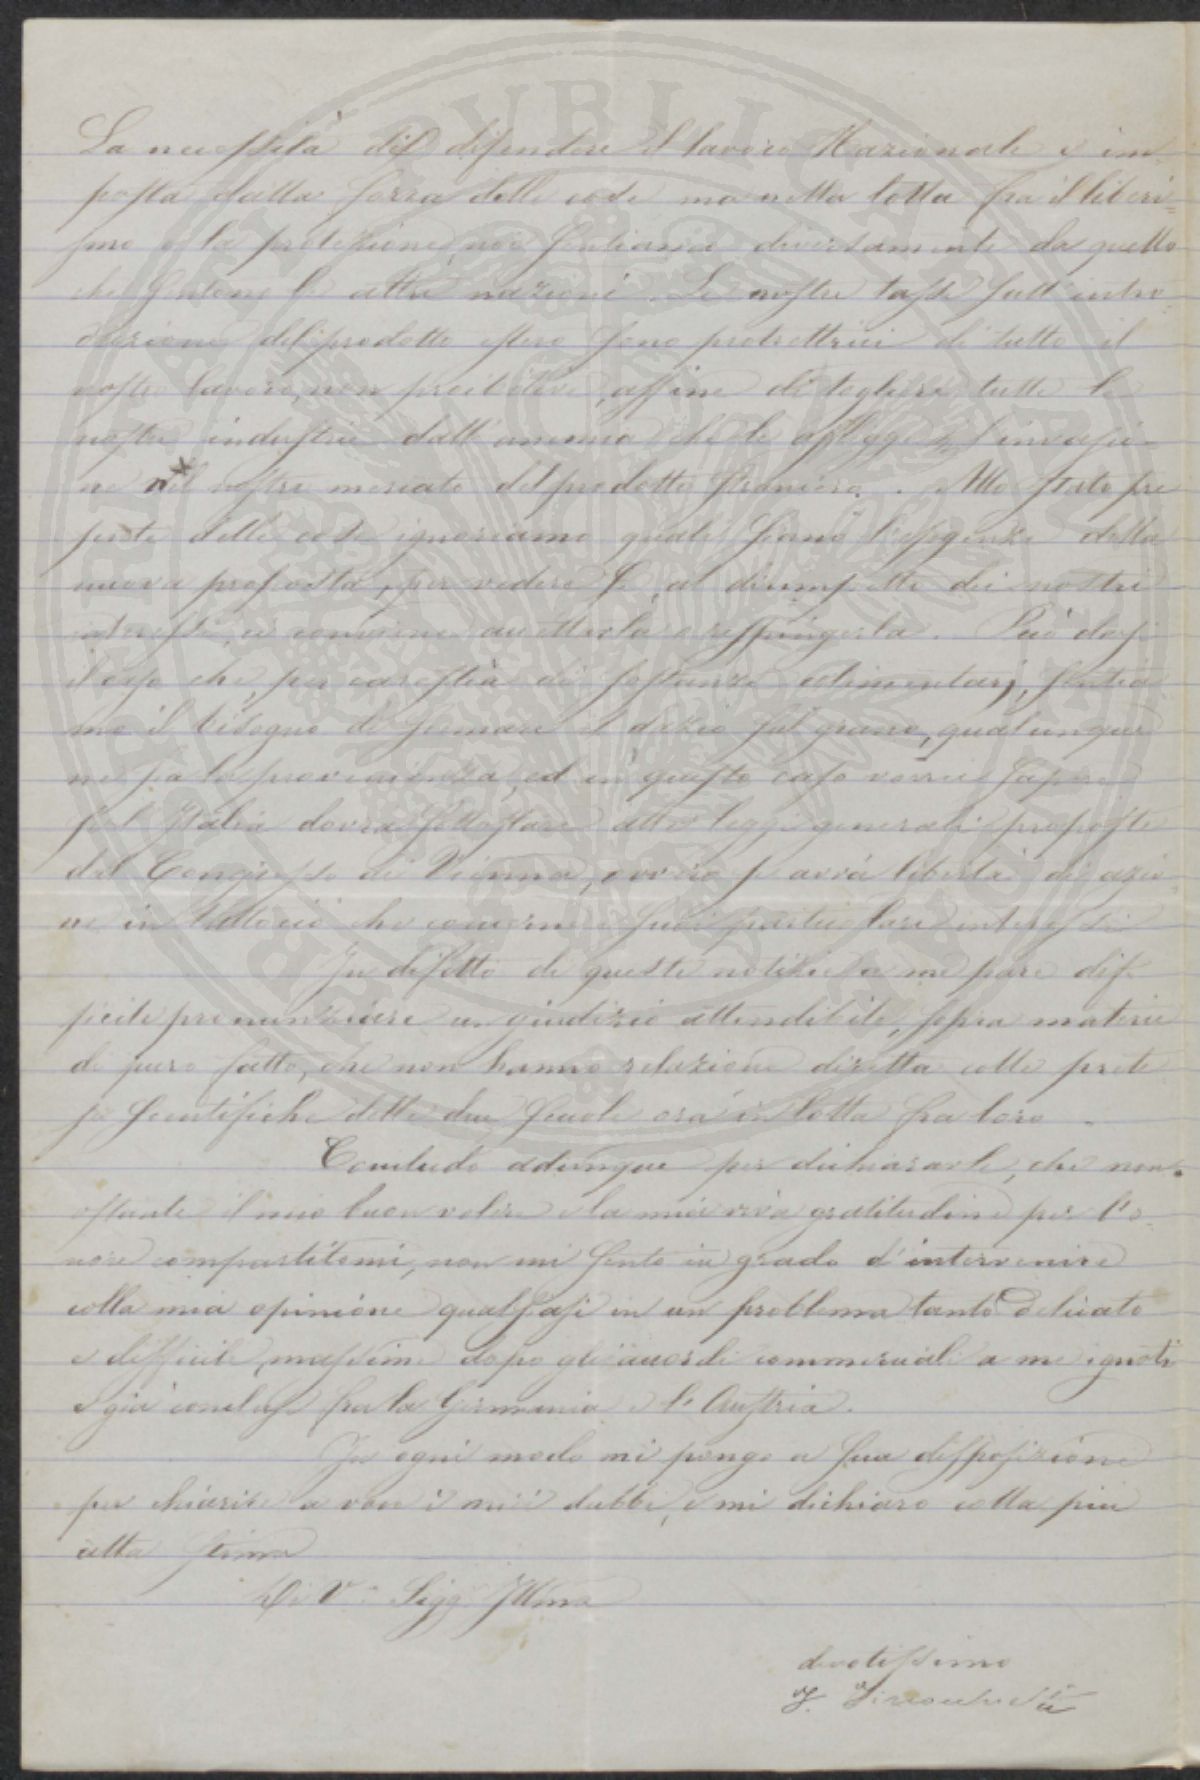 La necessità di difendere il lavoro Nazionale è im-
posta dalla forza delle cose ma nella lotta fra il liberi=
smo e la protezione, noi sentiamo diversamente da quello
che sentono le altre nazioni. Le nostre tasse sull'intro-
duzione del prodotto estero sono protettrici di tutto il
nostro lavoro, non proibitive, affine di togliere tutte le
nostre industrie dall'anemia che le affligge, l'invasio-
ne nel nostro mercato del prodotto straniero. Allo stato pre
sente delle cose ignoriamo quali siano l'esigenze della
nuova proposta, per vedere se, al dirimpetto dei nostri
interessi, ci conviene accettarla o respingerla. Può darsi
il caso che, per carestia di sostanze alimentarj, sentia
mo il bisogno di scemare il dazio sul grano, qualunque
ne sia la provenienza, ed in questo caso vorrei sapere
se l'Italia dovrà sottostare alle leggi generali proposte
dal Congresso di Vienna, ovvero se avrà libertà di azio-
ne in tuttociò che concerne i suoi particolari interessi
In difetto di queste notizie a me pare dif-
ficile pronunziare un giudizio attendibile, sopra materie
di puro fatto, che non hanno relazione diretta colle prete
se scientifiche delle due scuole ora in lotta fra loro.
Concludo adunque per dichiararle, che non-
ostante il mio buon volere e la mia viva gratitudine per l'o-
nore compartitomi, non mi sento in grado d'intervenire
colla mia opinione qualsiasi in un problema tanto delicato
e difficile, massime dopo gli accordi commerciali a me ignoti
e già conclusi fra la Germania e l'Austria.
In ogni modo mi pongo a sua disposizione
per chiarire a voce i miei dubbi, e mi dichiaro colla più
alta stima
Di V. Sig. Illma
devotissimo